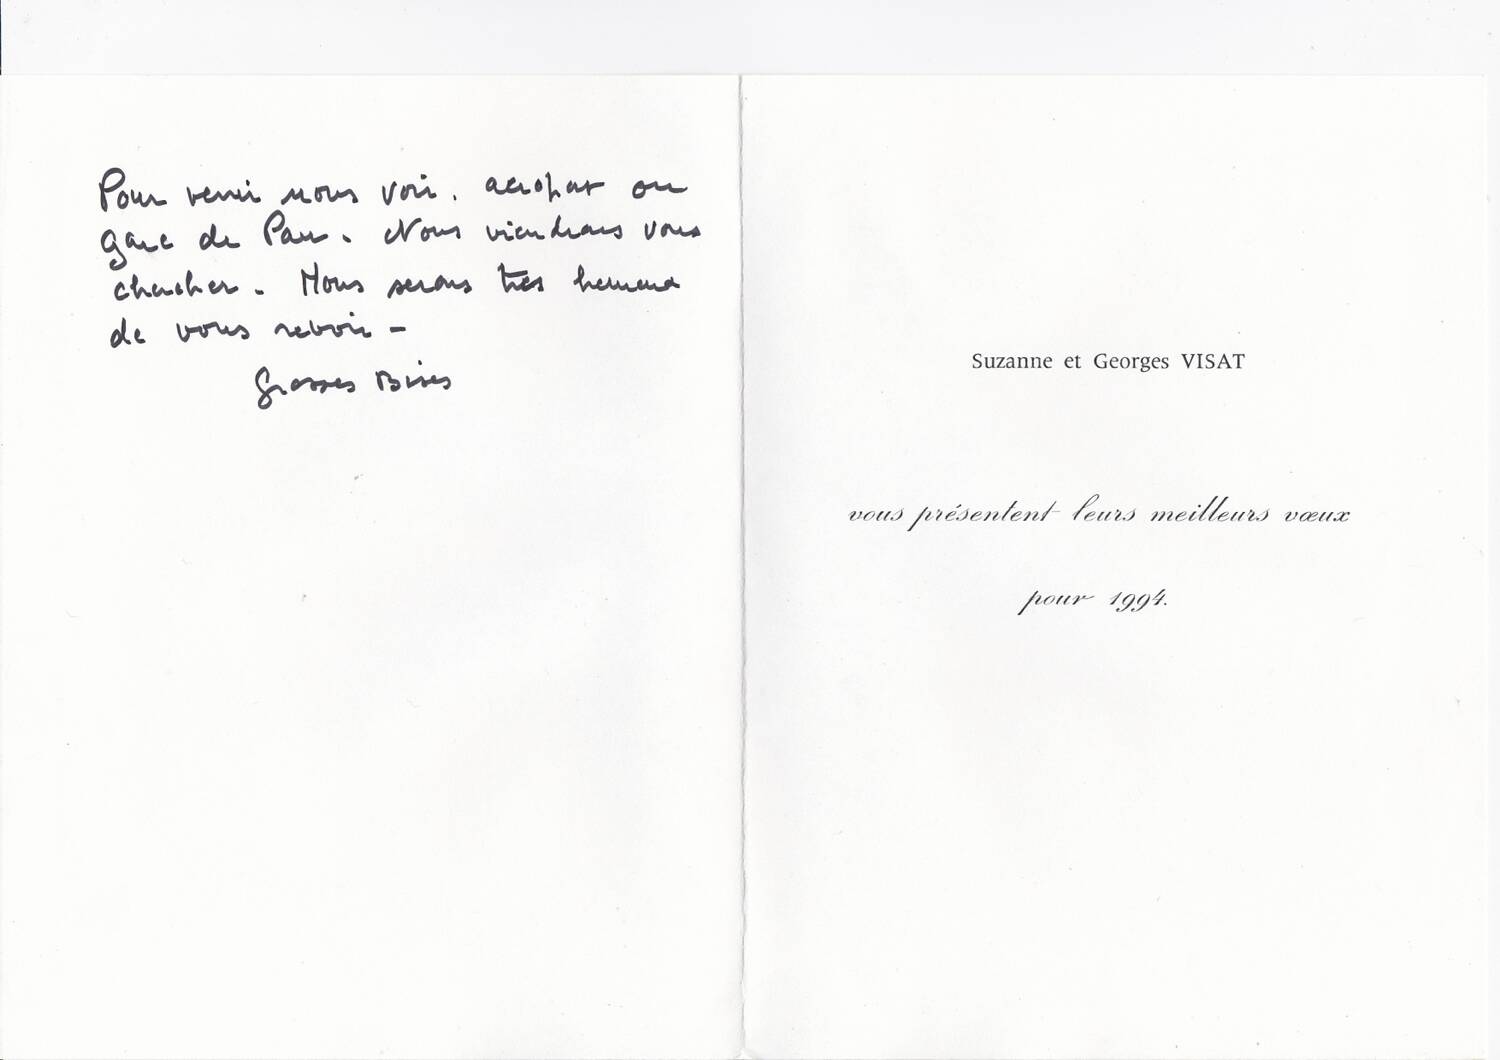 Pour venir nous voir. aeroport ou
gare de Pau. Nous viendrons vous
chercher. Nous serons très heureux
de vous revoir -
Grosses Bises
Suzanne et Georges VISAT
vous présentent leurs meilleurs vœux
pour 1994.